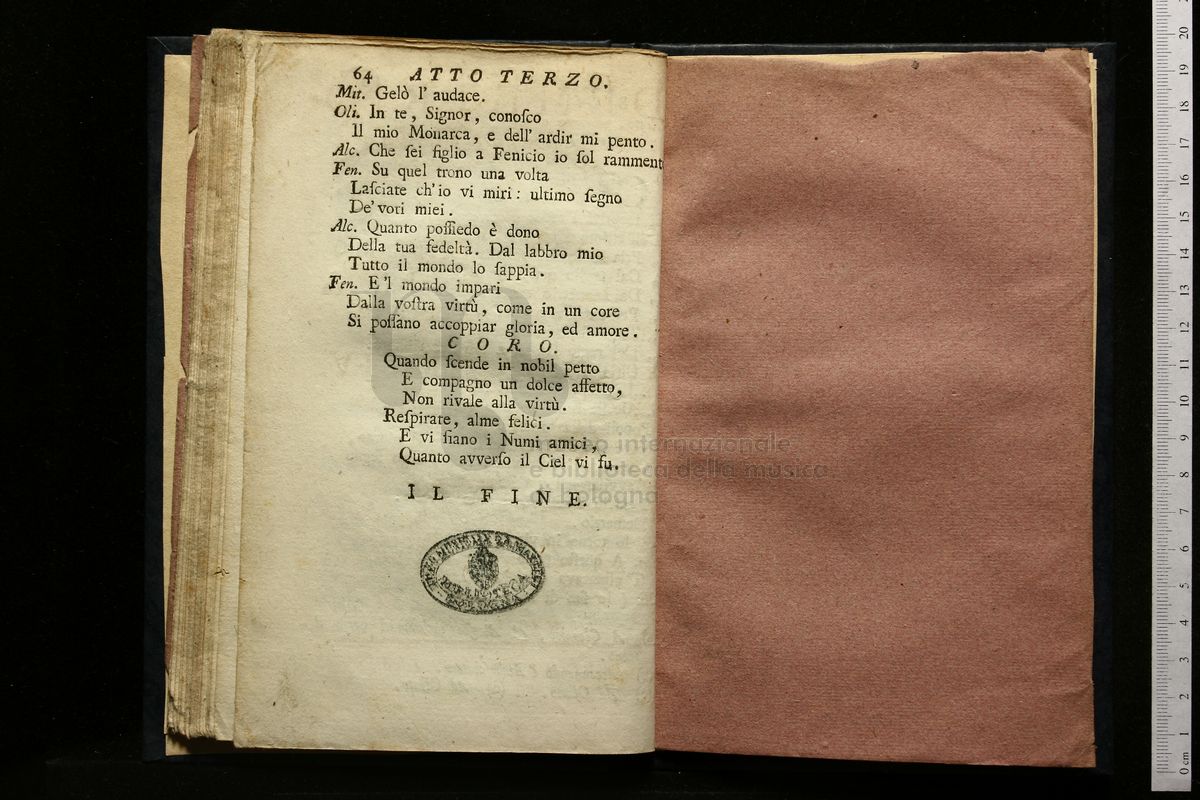 64 ATTO TERZO.
Mit. Gelò l' audace.
Oli. In te, Signor, conoſco
Il mio Monarca, e dell' ardir mi pento.
Alc. Che ſei figlio a Fenicio io ſol rammento
Fen. Su quel trono una volta
Laſciate ch'io vi miri: ultimo ſegno
De' voti miei.
Alc. Quanto poſſiedo è dono
Della tua fedeltà. Dal labbro mio
Tutto il mondo lo ſappia.
Fen. E 'l mondo impari
Dalla voſtra virtù, come in un core
Si poſſano accoppiar gloria, ed amore.
C O R O.
Quando ſcende in nobil petto
E compagno un dolce affetto,
Non rivale alla virtù.
Reſpirate, alme felici.
E vi ſiano i Numi amici,
Quanto avverſo il Ciel vi fu.
IL FINE.
BIBLIOTECA
BOLOGNA
museo internazionale
e biblioteca della musica
di bologna
0 cm 1 2 3 4 5 6 7 8 9 10 11 12 13 14 15 16 17 18 19 20